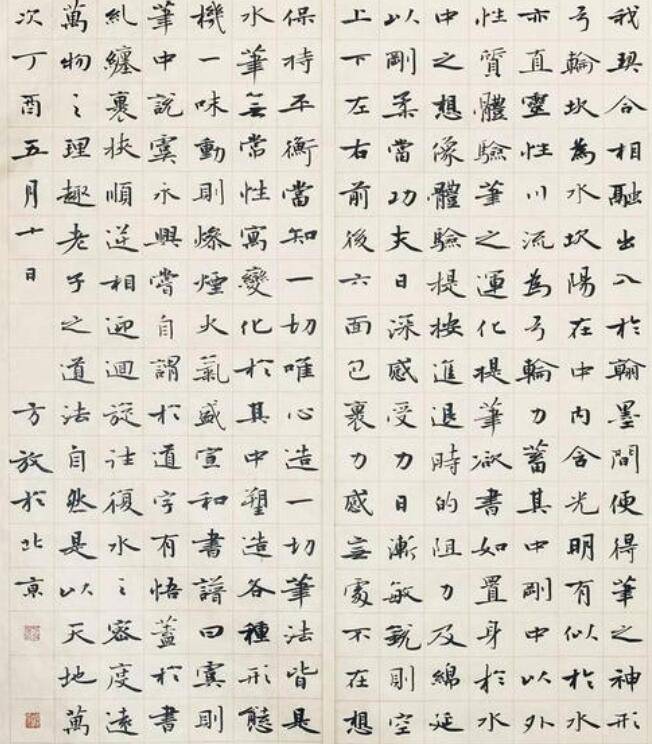 我契合相融出入於翰墨間便得筆之神形
弓輪坎為水坎陽在中內含光明有似於水
亦直靈性川流為弓輪力蓄其中剛中以外
性質體驗筆之運化提筆欲書如置身於水
中之想像體驗提按進退時的阻力及綿延
以剛柔當功夫日深感受力日漸敏銳則空
上下左右前後六面包裹力感無處不在想
保持平衡當知一切唯心造一切筆法皆是
水筆無常性寓變化於其中塑造各種形態
機一味動則燥煙火氣盛宣和書譜曰虞則
筆中說虞永興嘗自謂於道字有悟蓋於書
糺纏裹挾順逆相迎迴旋往復水之密度遠
萬物之理趣老子之道法自然是以天地萬
次丁酉五月十日 方放於北京